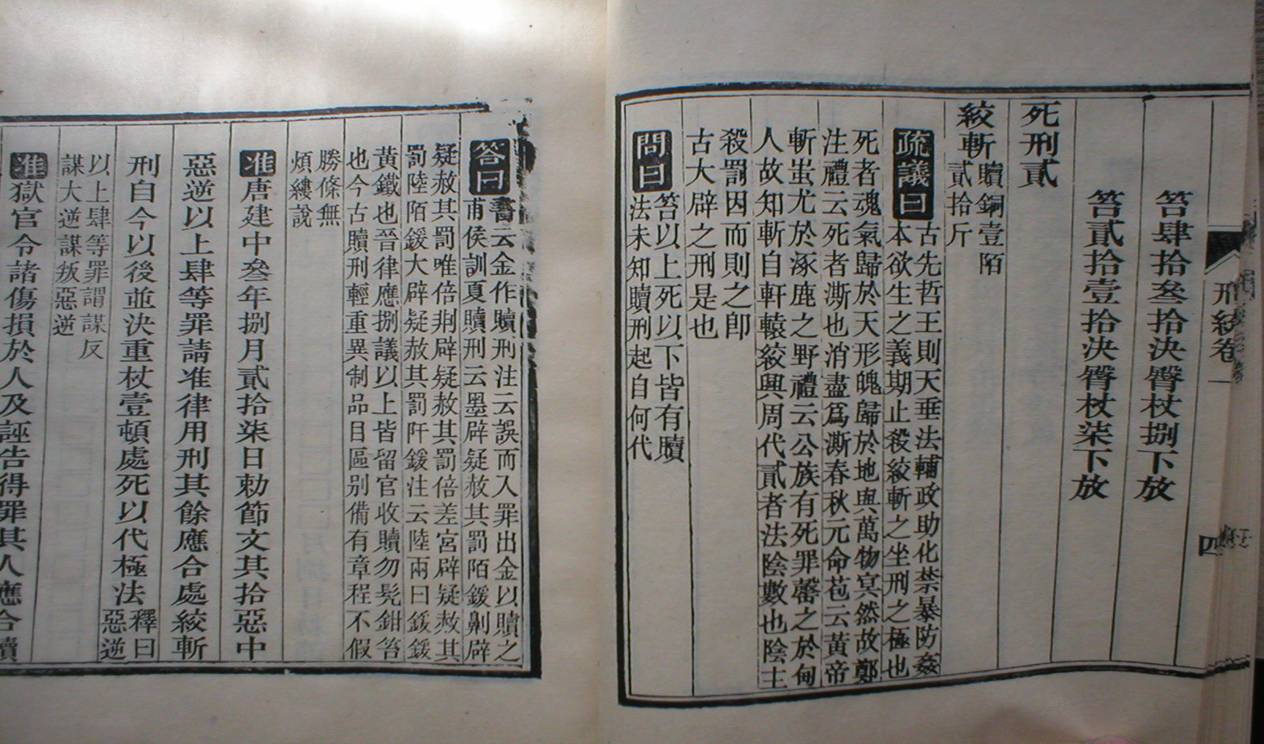 刑統卷一
四
笞肆拾叁拾決臀杖捌下放
笞貳拾壹拾決臀杖柒下放
死刑貳
絞斬贖銅壹陌
貳拾斤
疏議曰古先哲王則天垂法輔政助化禁暴防姦
本欲生之義期止殺絞斬之坐刑之極也
死者魂氣歸於天形魄歸於地與萬物冥然故鄭
注禮云死者澌也消盡爲澌春秋元命苞云黃帝
斬蚩尤於涿鹿之野禮云公族有死罪罄之於甸
人故知斬自軒轅絞興周代貳者法陰數也陰主
殺罰因而則之卽
古大辟之刑是也
問曰笞以上死以下皆有贖
法未知贖刑起自何代
答曰書云金作贖刑注云誤而入罪出金以贖之
甫侯訓夏贖刑云墨辟疑赦其罰陌鍰劓辟
疑赦其罰唯倍剕辟疑赦其罰倍差宮辟疑赦其
罰陸陌鍰大辟疑赦其罰阡鍰注云陸兩曰鍰鍰
黃鐵也晉律應捌議以上皆留官收贖勿髡鉗笞
也今古贖刑輕重異制品目區别備有章程不假
勝條無
煩縷說
准唐建中叁年捌月貳拾柒日勅節文其拾惡中
惡逆以上肆等罪請准律用刑其餘應合處絞斬
刑自今以後並決重杖壹頓處死以代極法釋曰
惡逆
以上肆等罪謂謀反
謀大逆謀叛惡逆
准獄官令諸傷損於人及誣告得罪其人應合贖